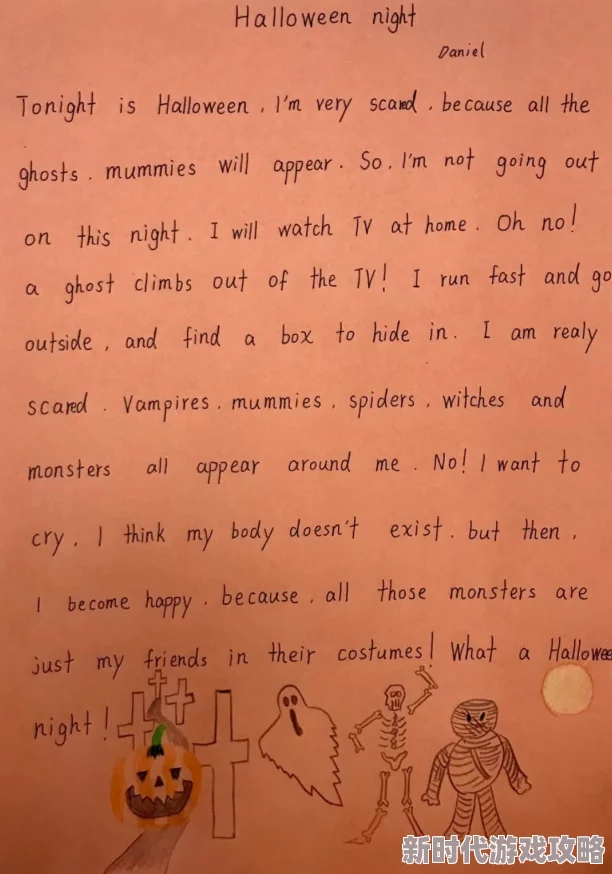 Halloween night
Daniel
Tonight is Halloween, I'm very scared, because all the
ghosts, mummies will appear. So, I'm not going out
on this night. I will watch TV at home. Oh no!
a ghost climbs out of the TV! I run fast and go
outside, and find a box to hide in. I am realy
scared. Vampires, mummies, spiders, witches and
monsters all appear around me. No! I want to
cry, I think my body doesn't exist. but then,
I become happy, because, all those monsters are
just my friends in their costumes! What a Hallowee
night!
新时代游戏攻略